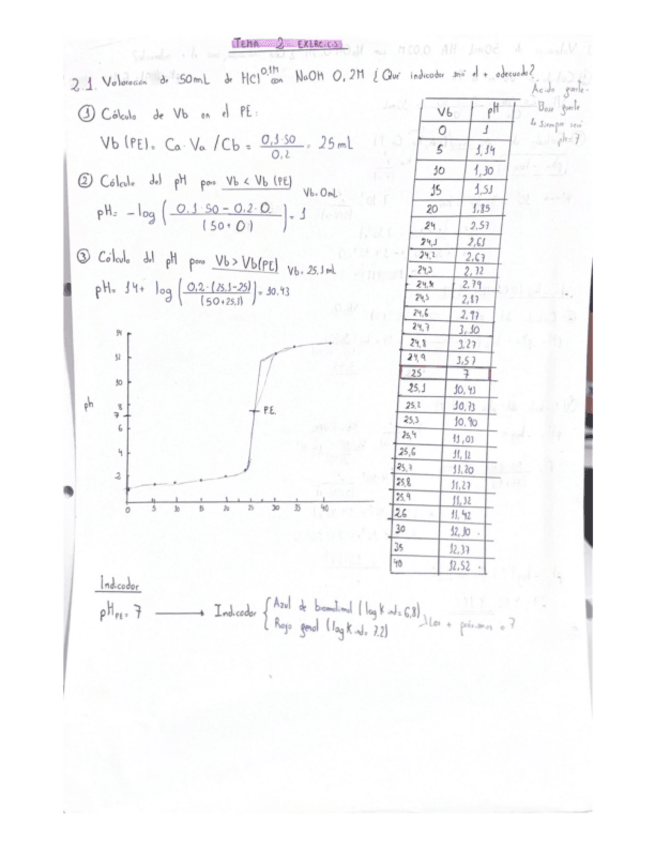 TEMA 2 EXERCICIS
2.1. Valoración de 50mL de HCl 0,1M con NaOH 0,2M ¿Qué indicador será el + adecuado?
Ácido fuerte-
Base fuerte
siempre será
pH=7
① Cálculo de Vb en el PE:
Vb (PE)= Ca · Va / Cb = 0,1·50 / 0,2 = 25mL
② Cálculo del pH para Vb < Vb (PE) Vb=0mL
pH= -log ( 0,1·50 - 0,2·0 / (50+0) ) = 1
③ Cálculo del pH para Vb > Vb(PE) Vb=25,1mL
pH= 14 + log ( 0,2·(25,1-25) / (50+25,1) ) = 10,43
Vb pH
0 1
5 1,14
10 1,30
15 1,51
20 1,85
24 2,57
24,1 2,61
24,2 2,67
24,3 2,72
24,4 2,79
24,5 2,87
24,6 2,97
24,7 3,10
24,8 3,27
24,9 3,57
25 7
25,1 10,43
25,2 10,73
25,3 10,90
25,4 11,03
25,6 11,12
25,7 11,20
25,8 11,27
25,9 11,32
26 11,42
30 12,10
35 12,37
40 12,52
14
11
10
8
7
6
4
2
ph
P.E.
0 5 10 15 20 25 30 35 40
Indicador
pH PE = 7 → Indicador { Azul de bromotimol (log K ind= 6,8)
Rojo fenol (log K ind= 7,2) } Los + próximos a 7